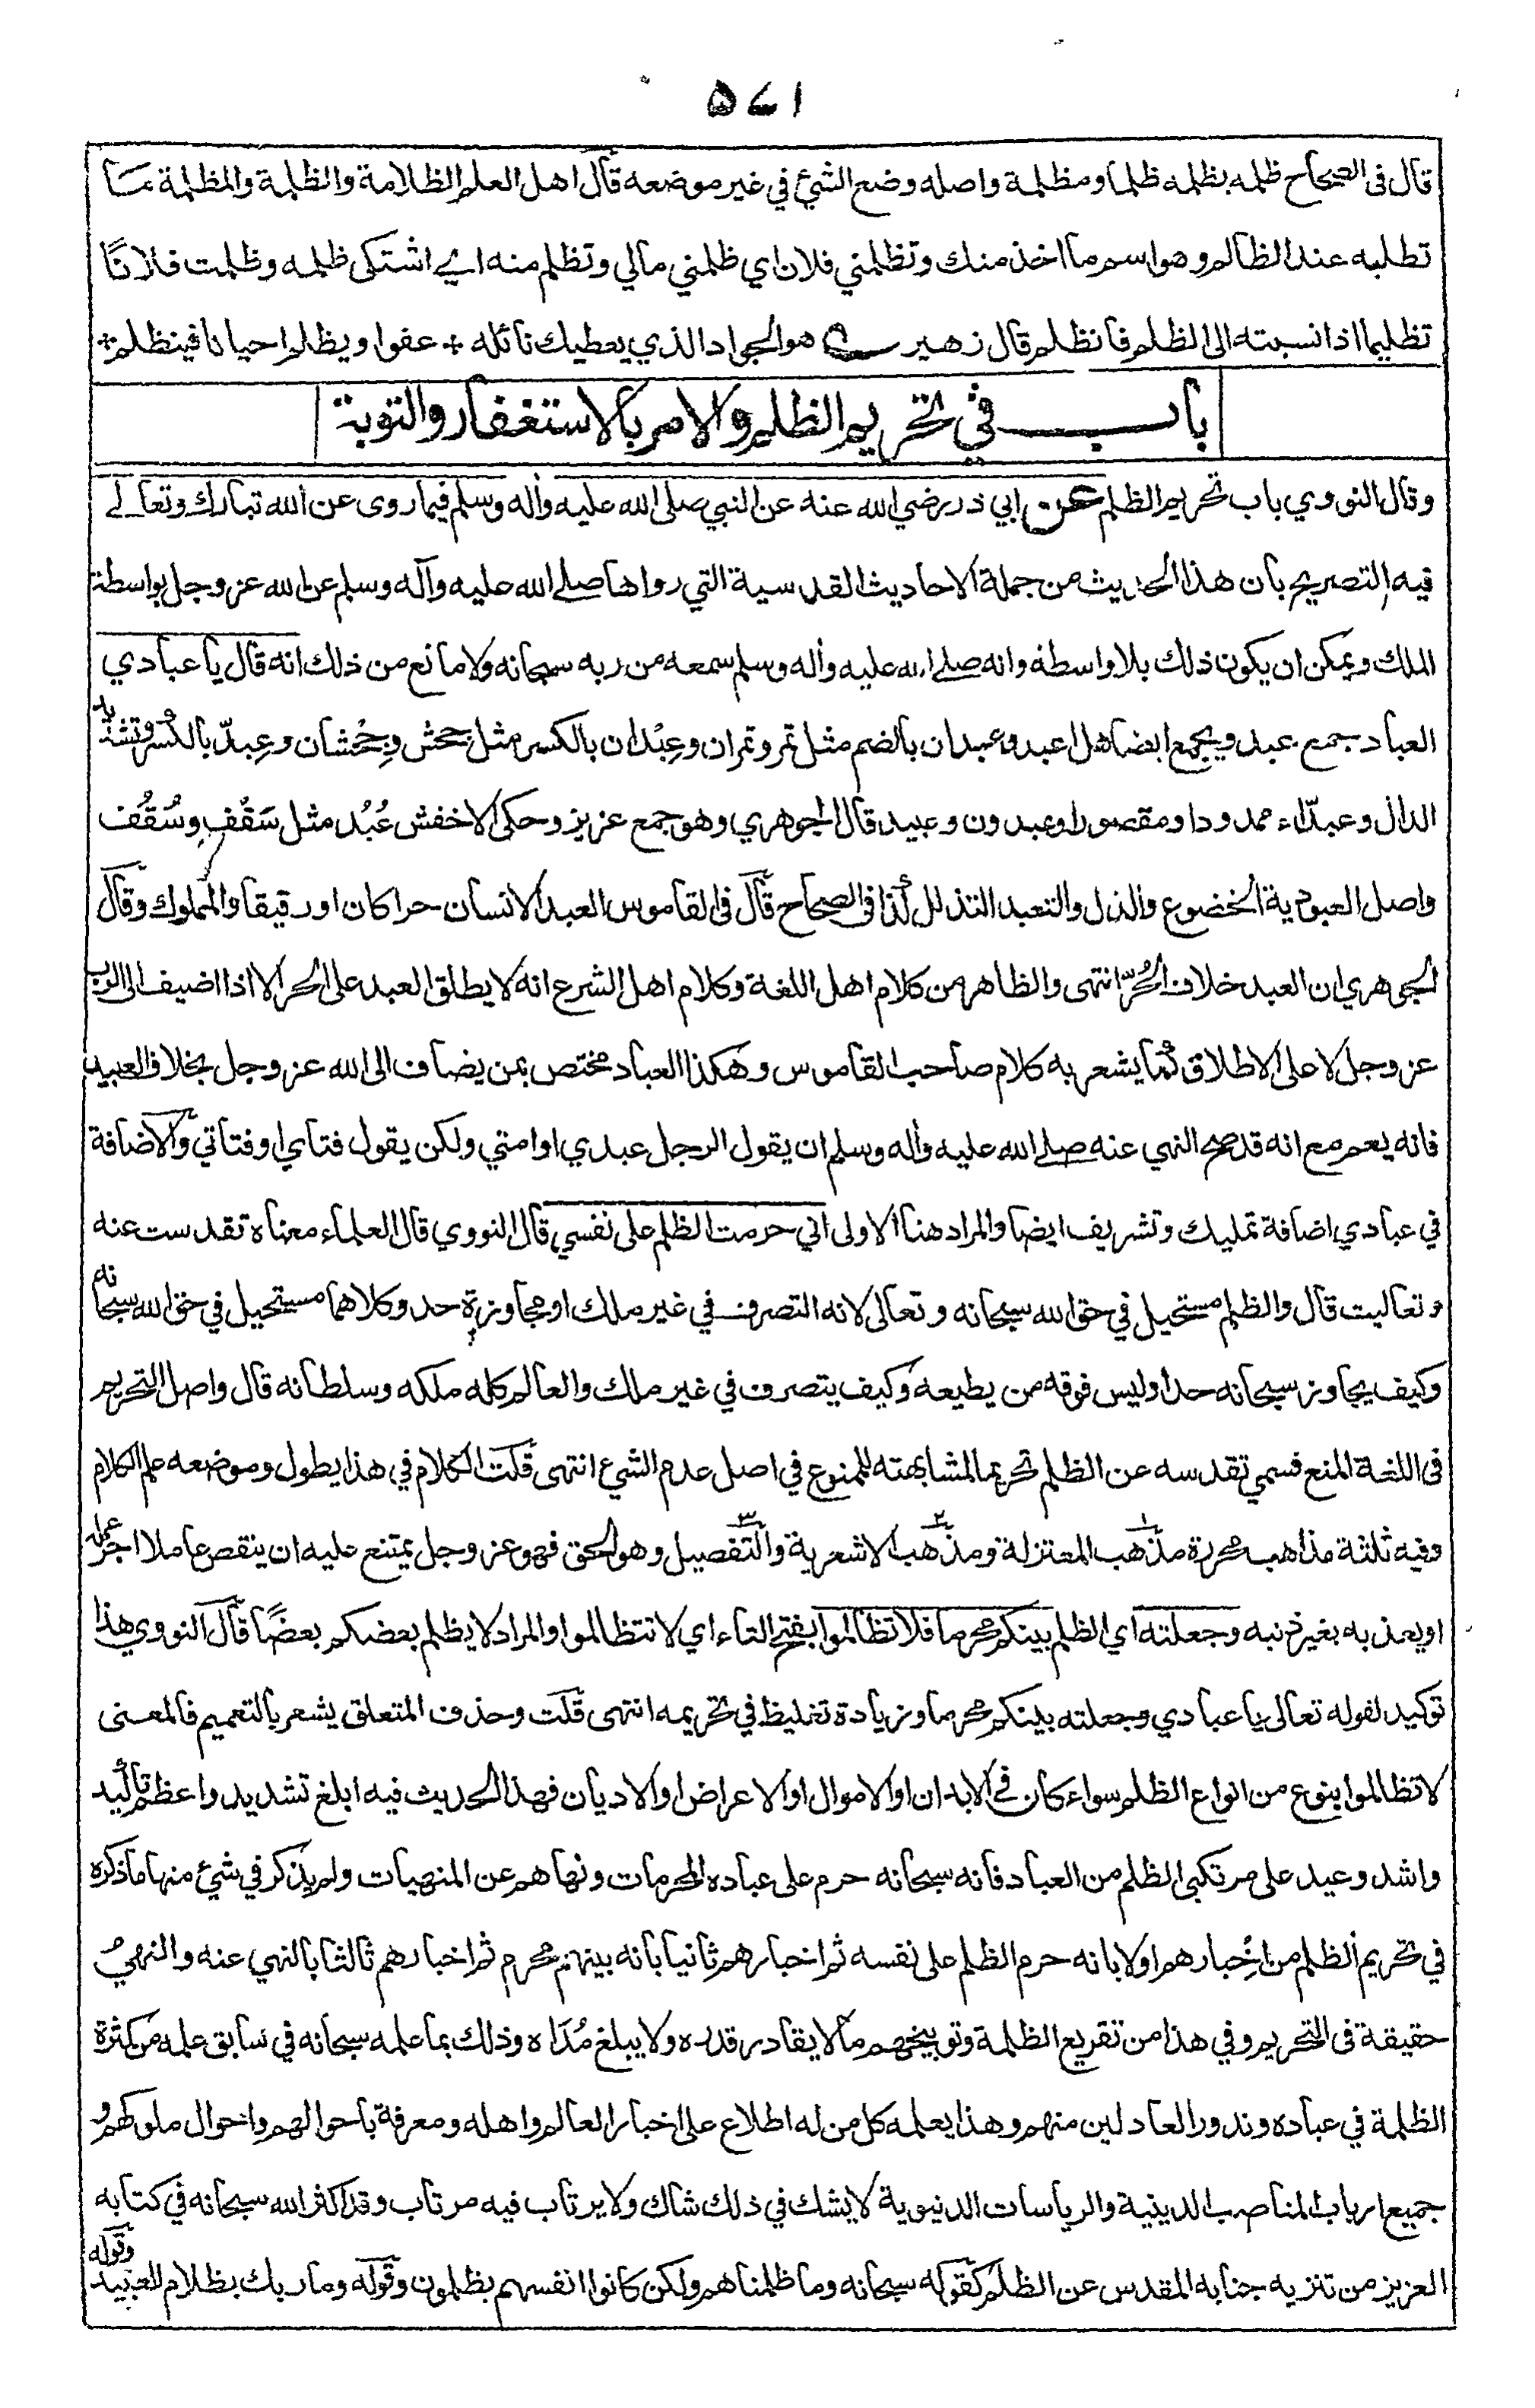 ۵۷۱
قال فى الصحاح ظلمه يظلمه ظلما ومظلمة واصله وضع الشيئ في غير موضعه قال اهل العلم الظلامة والظلمة والمظلمة ما
تطلبه عند الظالم وهو اسم ما اخذ منك وتظلمني فلان اي ظلمني مالي وتظلم منه اي اشتكى ظلمه وظلمت فلانًا
تظليما اذا نسبته الى الظلم فانظلم قال زهير هو الجواد الذي يعطيك نائله * عفوا ويظلم احيانا فينظلم *
باب في تحريم الظلم والامر بالاستغفار والتوبة
وقال النووي باب تحريم الظلم عن ابي ذر رضي الله عنه عن النبي صلى الله عليه وأله وسلم فيما روى عن الله تبارك وتعالى
فيه التصريح بان هذا الحديث من جملة الاحاديث القدسية التي رواها صلے الله عليه وآله وسلم عن الله عز وجل بواسطة
الملك ويمكن ان يكون ذلك بلا واسطة وانه صلے الله عليه وأله وسلم سمعه من ربه سبحانه ولا مانع من ذلك انه قال يا عبادي
العباد جمع عبد ويجمع ايضا على اعبد وعبدان بالضم مثل تمر وتمران وعِبْدان بالكسر مثل جحش وجِحْشان وعِبدّ بالكسر وتشديد
الدال وعبدّاء ممدودا ومقصورا وعبدون وعبيد قال الجوهري وهو جمع عزيز وحكى الاخفش عُبُد مثل سَقْف وسُقُف
واصل العبودية الخضوع والذل والتعبد التذلل كذا فى الصحاح قال فى القاموس العبد الانسان حرا كان او رقيقا والمملوك وقال
الجوهري ان العبد خلاف الحُرّ انتهى والظاهر من كلام اهل اللغة وكلام اهل الشرع انه لا يطلق العبد على الحر الا اذا اضيف الى الرب
عز وجل لا على الاطلاق كما يشعر به كلام صاحب القاموس وهكذا العباد مختص بمن يضاف الى الله عز وجل بخلاف العبيد
فانه يعم مع انه قد صح النهي عنه صلے الله عليه وأله وسلم ان يقول الرجل عبدي او امتي ولكن يقول فتاي او فتاتي والاضافة
في عبادي اضافة تمليك وتشريف ايضا والمراد هنا الاولى اني حرمت الظلم على نفسي قال النووي قال العلماء معناه تقدست عنه
وتعاليت قال والظلم مستحيل في حق الله سبحانه وتعالى لانه التصرف في غير ملك او مجاوزة حد وكلاهما مستحيل في حق الله سبحانه
وكيف يجاوز سبحانه حدا وليس فوقه من يطيعه وكيف يتصرف في غير ملك والعالم كله ملكه وسلطانه قال واصل التحريم
فى اللغة المنع فسمي تقدسه عن الظلم تحريما لمشابهته للممنوع في اصل عدم الشيئ انتهى قلت الكلام في هذا يطول وموضعه علم الكلام
وفيه ثلثة مذاهب محررة مذهب المعتزلة ومذهب الاشعرية والتفصيل وهو الحق فهو عز وجل يمتنع عليه ان ينقص عاملا اجر عمله
او يعذبه بغير ذنبه وجعلته اي الظلم بينكم محرما فلا تظالموا بفتح التاء اي لا تتظالموا والمراد لا يظلم بعضكم بعضًا قال النووي هذا
توكيد لقوله تعالى يا عبادي وجعلته بينكم محرما وزيادة تغليظ في تحريمه انتهى قلت وحذف المتعلق يشعر بالتعميم فالمعنى
لا تظالموا بنوع من انواع الظلم سواء كان في الابدان او الاموال او الاعراض او الاديان فهذا الحديث فيه ابلغ تشديد واعظم تاكيد
واشد وعيد على مرتكبى الظلم من العباد فانه سبحانه حرم على عباده المحرمات ونهاهم عن المنهيات ولم يذكر في شيئ منها ما ذكره
في تحريم الظلم من اخبارهم اولا بانه حرم الظلم على نفسه ثم اخبارهم ثانيا بانه بينهم محرم ثم اخبارهم ثالثا بالنهي عنه والنهي
حقيقة فى التحريم وفي هذا من تقريع الظلمة وتوبيخهم ما لا يقادر قدره ولا يبلغ مُدَاه وذلك بما علمه سبحانه في سابق علمه من كثرة
الظلمة في عباده وندور العادلين منهم وهذا يعلمه كل من له اطلاع على اخبار العالم واهله ومعرفة باحوالهم واحوال ملوكهم و
جميع ارباب المناصب الدينية والرياسات الدنيوية لا يشك في ذلك شاك ولا يرتاب فيه مرتاب وقد اكثر الله سبحانه في كتابه
العزيز من تنزيه جنابه المقدس عن الظلم كقوله سبحانه وما ظلمناهم ولكن كانوا انفسهم يظلمون وقوله وما ربك بظلام للعبيد
وقوله